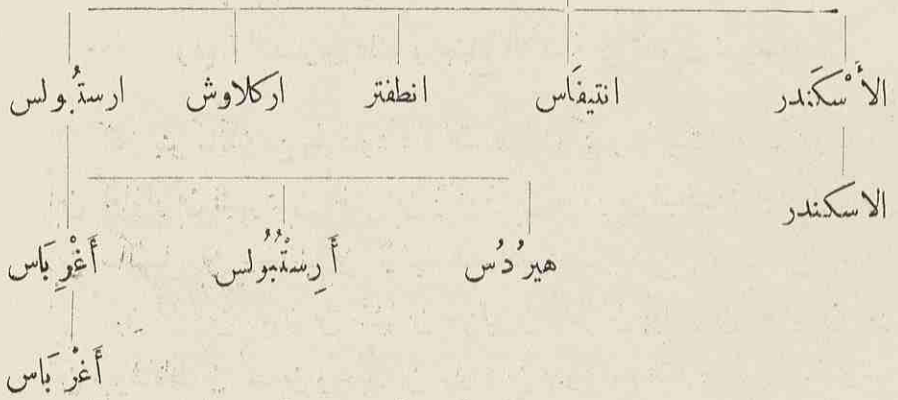 الأَسْكَندر انتيفَاس انطفتر اركلاوش ارستُبولس
الاسكندر
هيرُدُس أَرِسْتُبُولس أَغْرِبَاس
أَغْرَبَاس